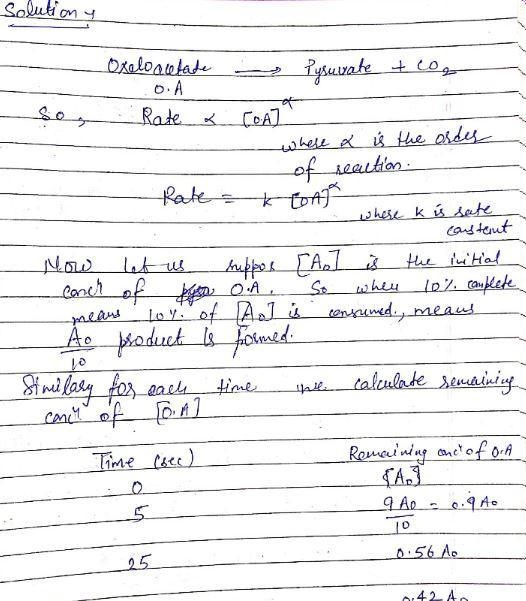 Solution
Oxaloacetate → Pyruvate + CO2
O.A
So, Rate α [OA]^α
where α is the order
of reaction.
Rate = k [OA]^α
where k is rate
constent
Now let us suppos [A0] is the initial
concn of O.A. So when 10% complete
means 10% of [A0] is consumed, means
A0/10 product is formed.
Similary for each time we calculate remaining
concn of [O.A]
Time (sec) Remaining concn of O.A
0 [A0]
5 9A0/10 = 0.9A0
25 0.56 A0
0.42 A0